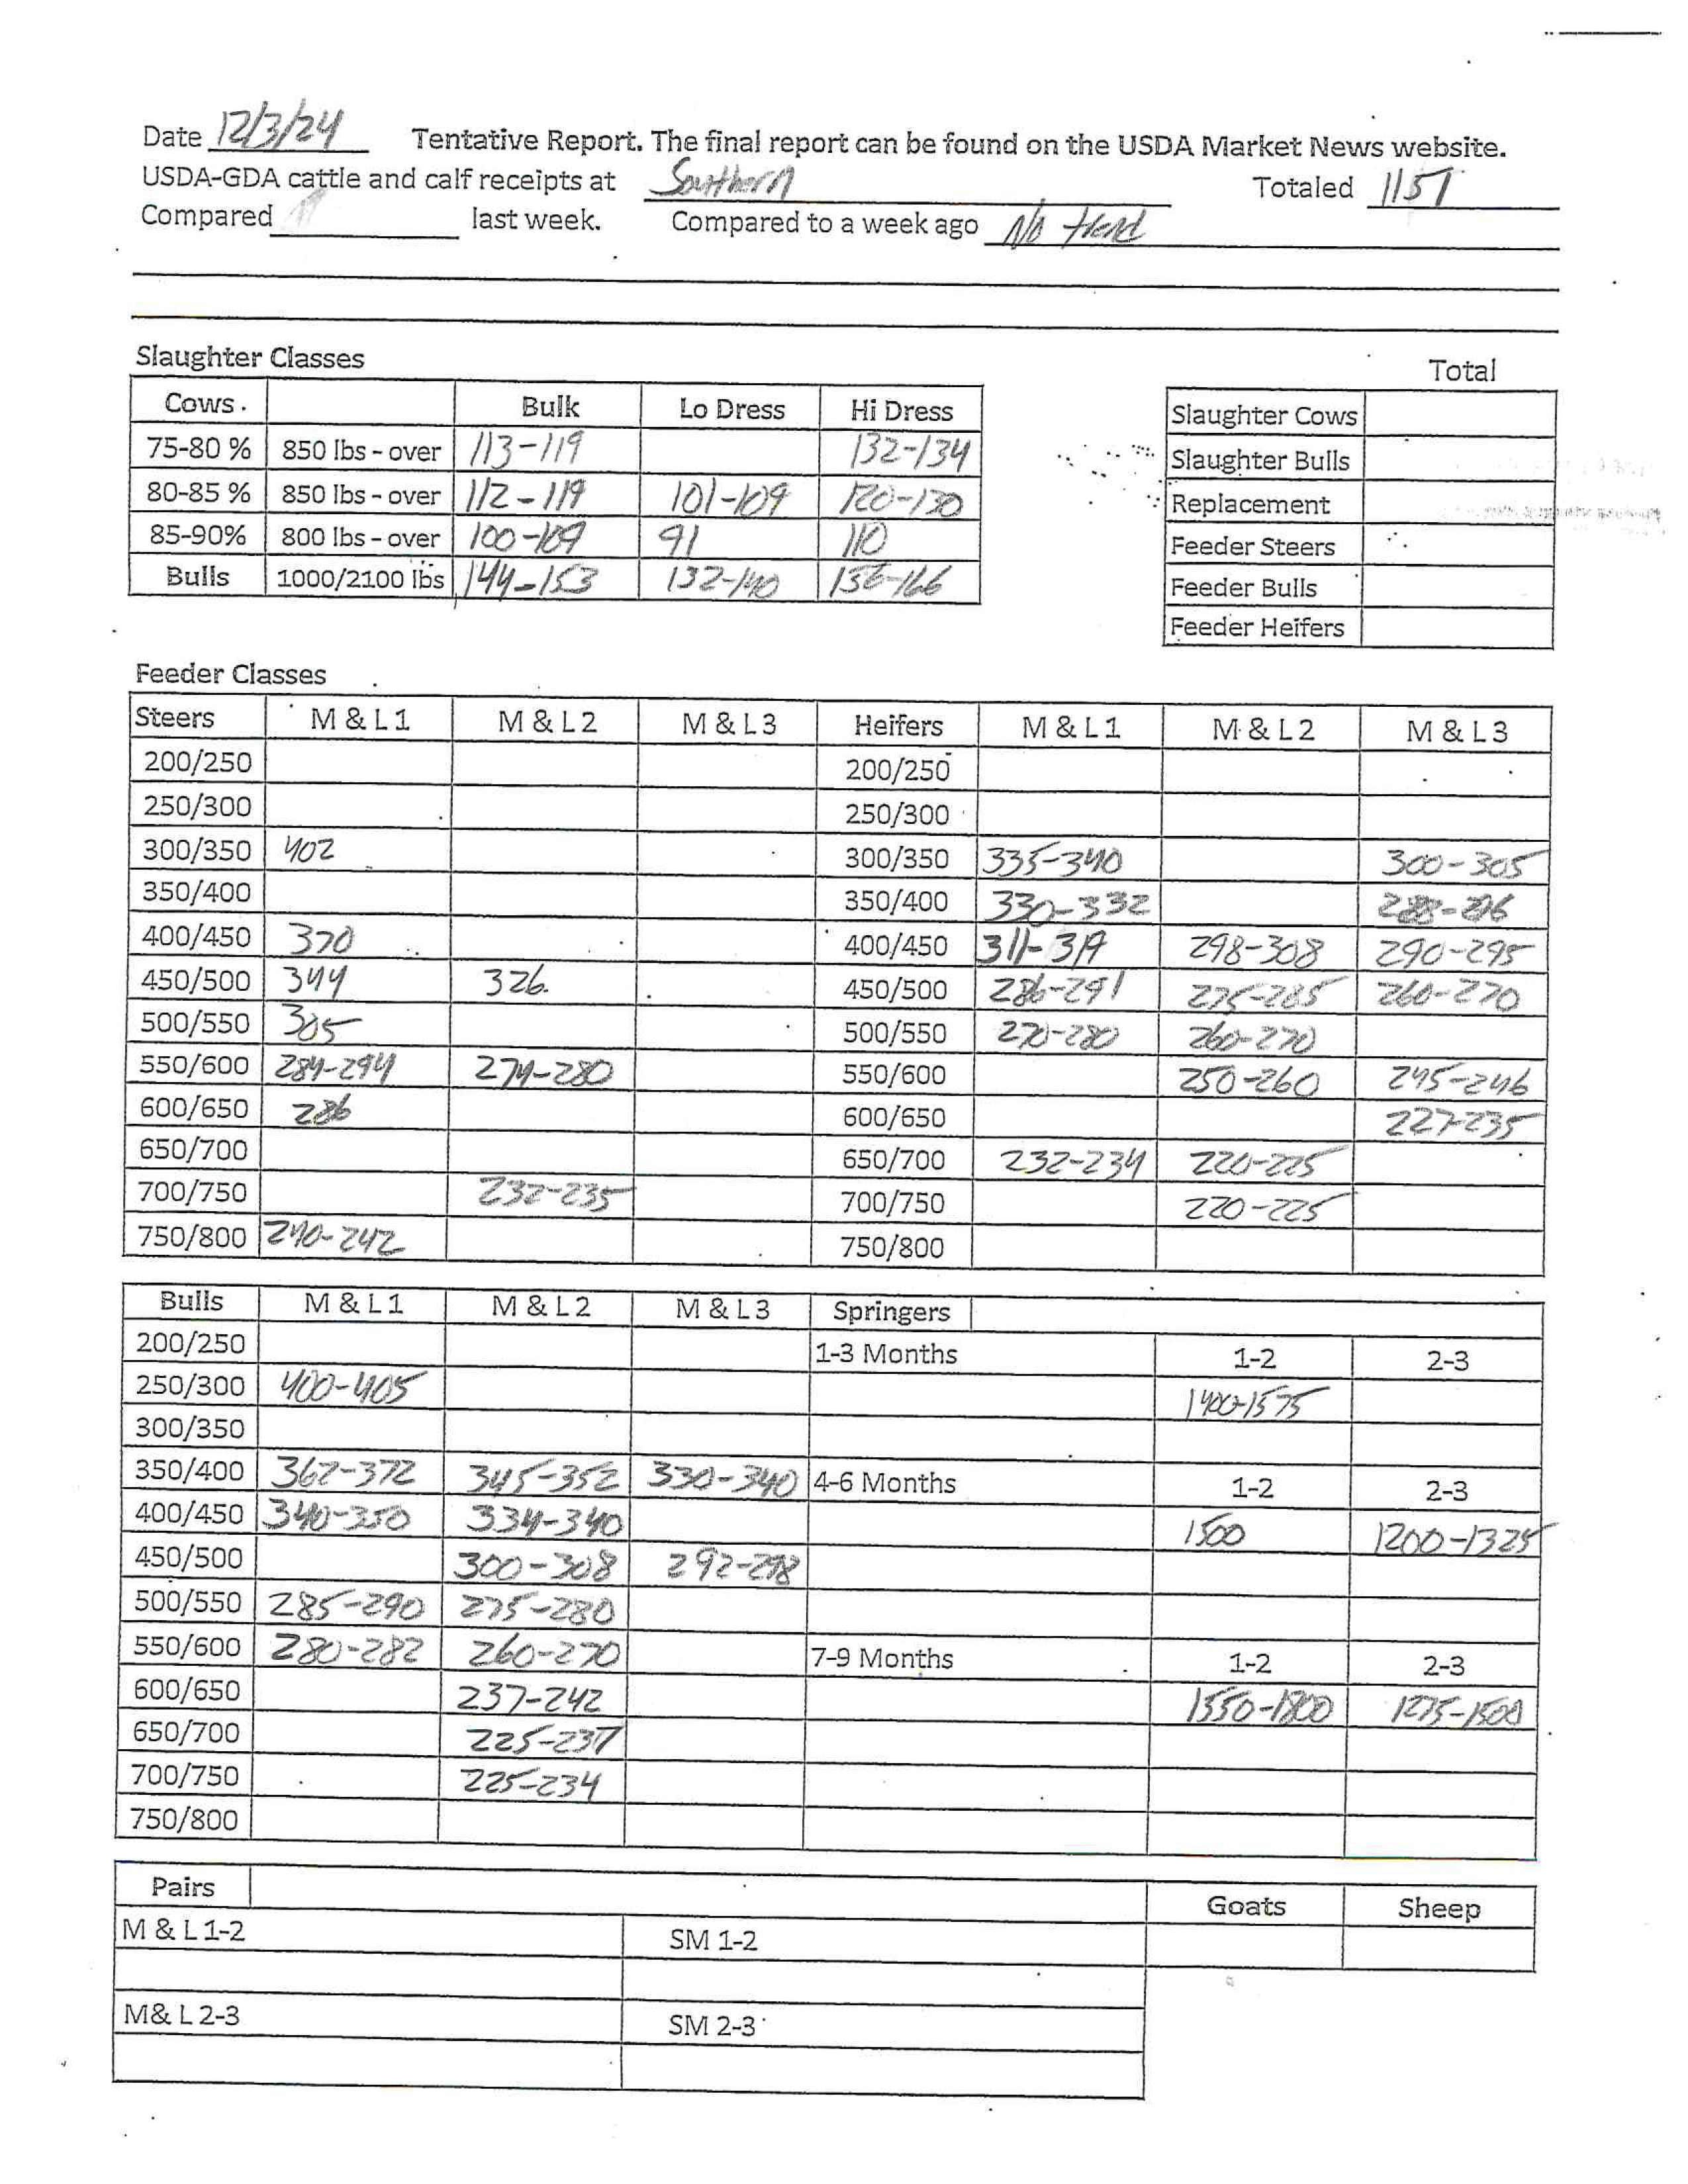 Date 12/3/24 Tentative Report. The final report can be found on the USDA Market News website.
USDA-GDA cattle and calf receipts at Southern Totaled 1151
Compared last week. Compared to a week ago No trend
Slaughter Classes
Total
Cows. Bulk Lo Dress Hi Dress
75-80 % 850 lbs - over 113-119 132-134
80-85 % 850 lbs - over 112-119 101-109 120-130
85-90% 800 lbs - over 100-109 91 110
Bulls 1000/2100 lbs 144-153 132-140 156-166
Slaughter Cows
Slaughter Bulls
Replacement
Feeder Steers
Feeder Bulls
Feeder Heifers
Feeder Classes
Steers M & L 1 M & L 2 M & L 3 Heifers M & L 1 M & L 2 M & L 3
200/250 200/250
250/300 250/300
300/350 402 300/350 335-340 300-305
350/400 350/400 330-332
400/450 370 400/450 311-319 298-308 290-295
450/500 344 326 450/500 286-291 275-285 260-270
500/550 305 500/550 270-280 260-270
550/600 284-294 274-280 550/600 250-260 245-246
600/650 286 600/650 227-235
650/700 650/700 232-234 220-225
700/750 232-235 700/750 220-225
750/800 240-242 750/800
Bulls M & L 1 M & L 2 M & L 3 Springers
200/250 1-3 Months 1-2 2-3
250/300 400-405 1400-1575
300/350
350/400 362-372 345-352 330-340 4-6 Months 1-2 2-3
400/450 340-350 334-340 1500 1200-1325
450/500 300-308 292-298
500/550 285-290 275-280
550/600 280-282 260-270 7-9 Months 1-2 2-3
600/650 237-242 1550-1800 1275-1500
650/700 225-237
700/750 225-234
750/800
Pairs Goats Sheep
M & L 1-2 SM 1-2
M& L 2-3 SM 2-3